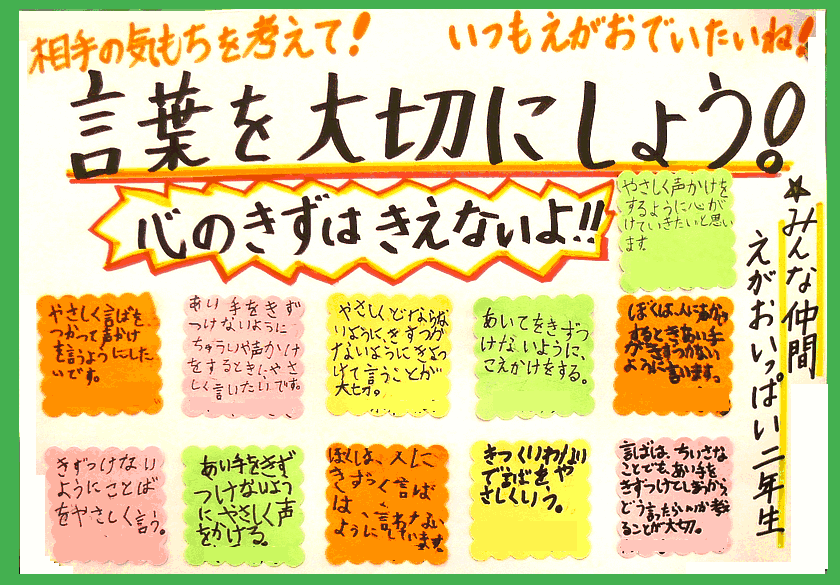 相手の気もちを考えて!
いつもえがおでいたいね!
言葉を大切にしょう!
心のきずはきえないよ!!
★みんな仲間
えがおいっぱい二年生
やさしく声かけを
するように心が
けていきたいと思い
ます
やさしく言ばを
つかって声かけ
を言ようにした
いです。
あい手をきず
つけないように
ちゅういや声かけ
をするときにやさ
しく言いたいです。
やさしくどならな
いように、きずつか
ないようにきをつ
けて言うことが
大切。
あいてをきずつ
けないように、
こえかけをする。
ぼくは、人に
するときあい手
がきずつかない
ように言います。
きずつけない
ようにことば
をやさしく言う。
あい手をきず
つけないよう
にやさしく声
をかける。
ぼくは、人に
きずつく言ば
は、言わない
ようにしています。
きつくいわない
でことばをや
さしくいう。
言ばは、ちいさな
ことでも、あい手を
きずつけてしまうから、
どう言ったらいいか考え
ることが大切。